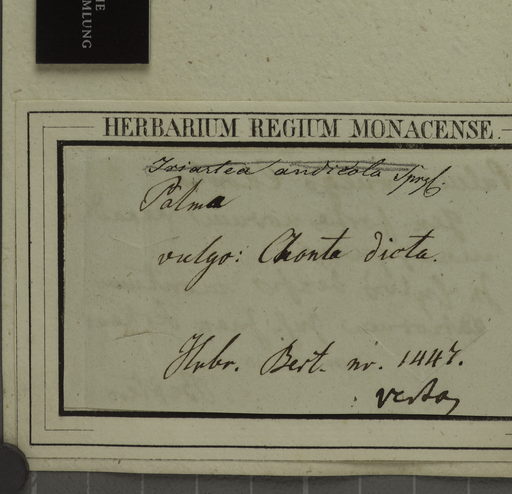 HE
MMLUNG
HERBARIUM REGIUM MONACENSE.
Iriartea andicola Sprgl.
Palma
vulgo: Chonta dicta.
Hrbr. Bert. nr. 1447.